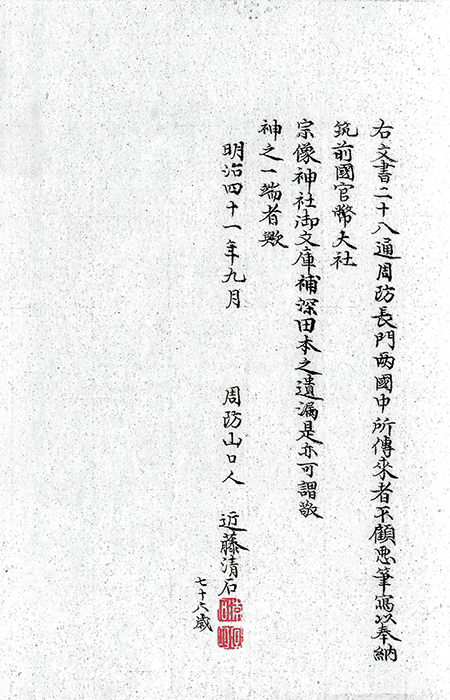 右文書二十八通周防長門两國中所傳來者不顧悪筆寫以奉納
筑前國官幣大社
宗像神社御文庫補深田本之遺漏是亦可謂敬
神之一端者歟
明治四十一年九月
周防山口人 近藤清石
七十六歳